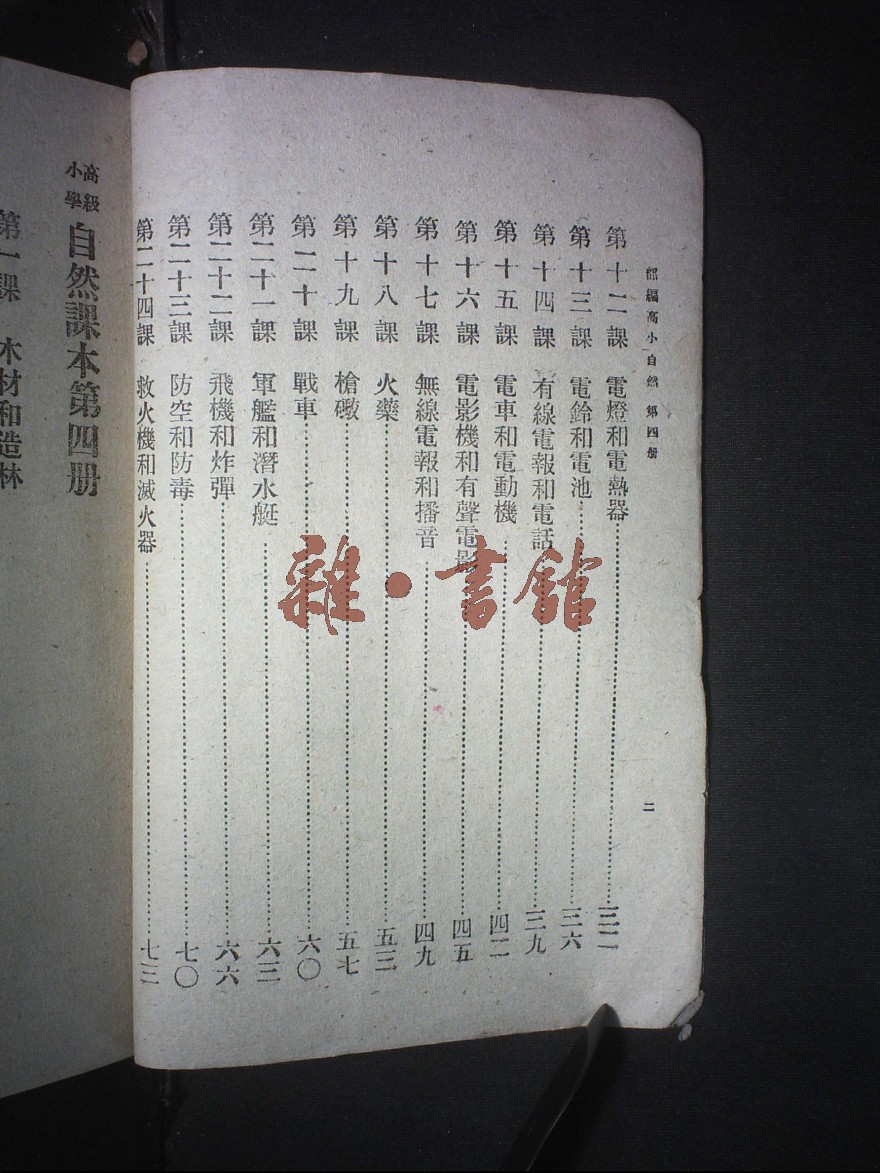 部編高小自然 第四册
二
第十二課 電燈和電熱器……三二
第十三課 電鈴和電池……三六
第十四課 有線電報和電話……三九
第十五課 電車和電動機……四二
第十六課 電影機和有聲電影……四五
第十七課 無線電報和播音……四九
第十八課 火藥……五三
第十九課 槍礮……五七
第二十課 戰車……六〇
第二十一課 軍艦和潛水艇……六三
第二十二課 飛機和炸彈……六六
第二十三課 防空和防毒……七〇
第二十四課 救火機和滅火器……七三
高級小學 自然課本第四册
第一課 木材和造林
雜·書館